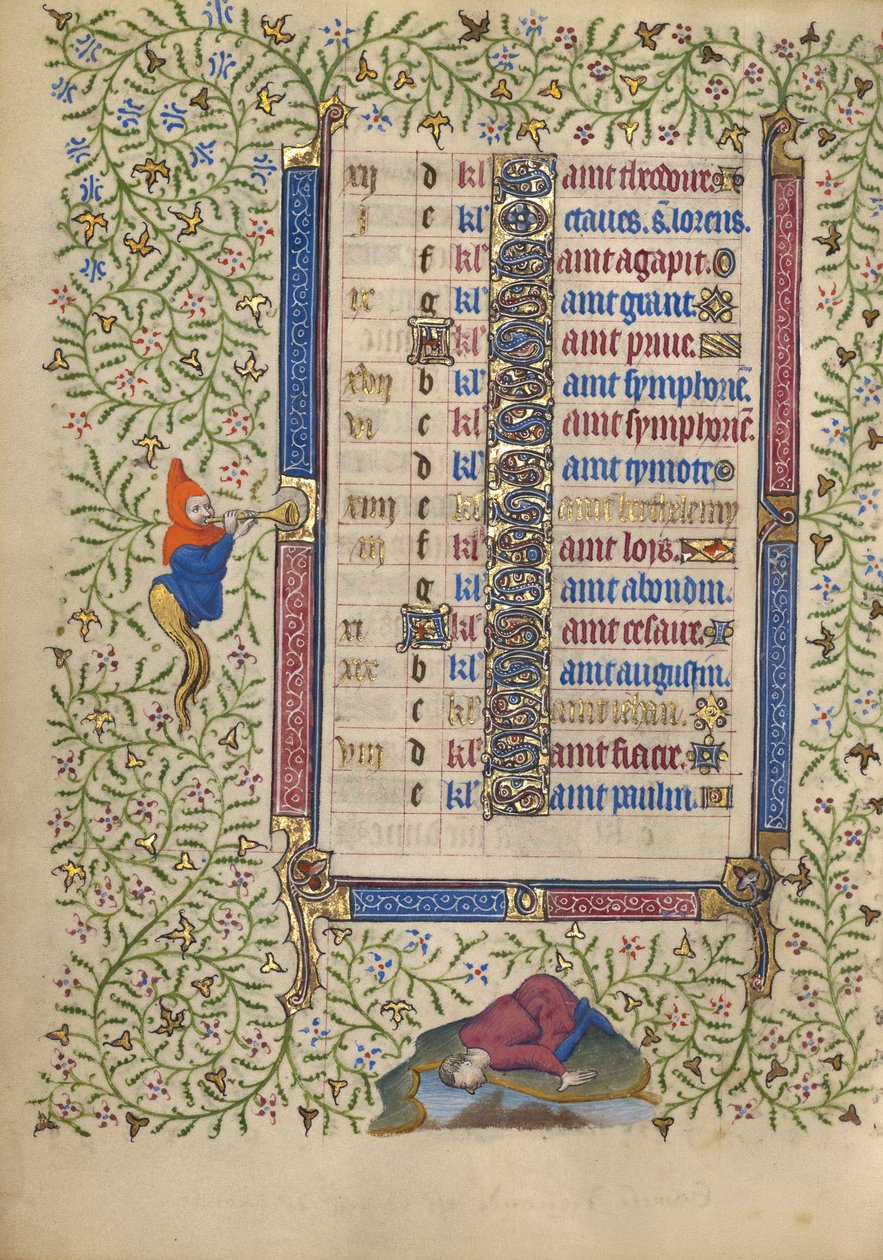 xij d kl Saint theodore.
j e kl Octaues. s. lorens.
f kl Saint agapit.
ix g kl Saint grant.
A kl Saint priue.
xvij b kl Saint symphoriē.
vi c kl Saint symphoriē.
d kl Saint tymote
xiiij e kl Saint berthelemy
iij f kl Saint loys.
g kl Saint abondin.
xi A kl Saint cesaire.
xix b kl Saint augustin.
c kl Saint iehan.
viij d kl Saint fiacre.
e kl Saint paulin.